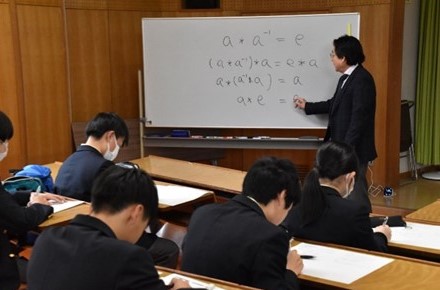 a * a⁻¹ = e
(a * a⁻¹) * a = e * a
a * (a⁻¹ * a) = a
a * e =